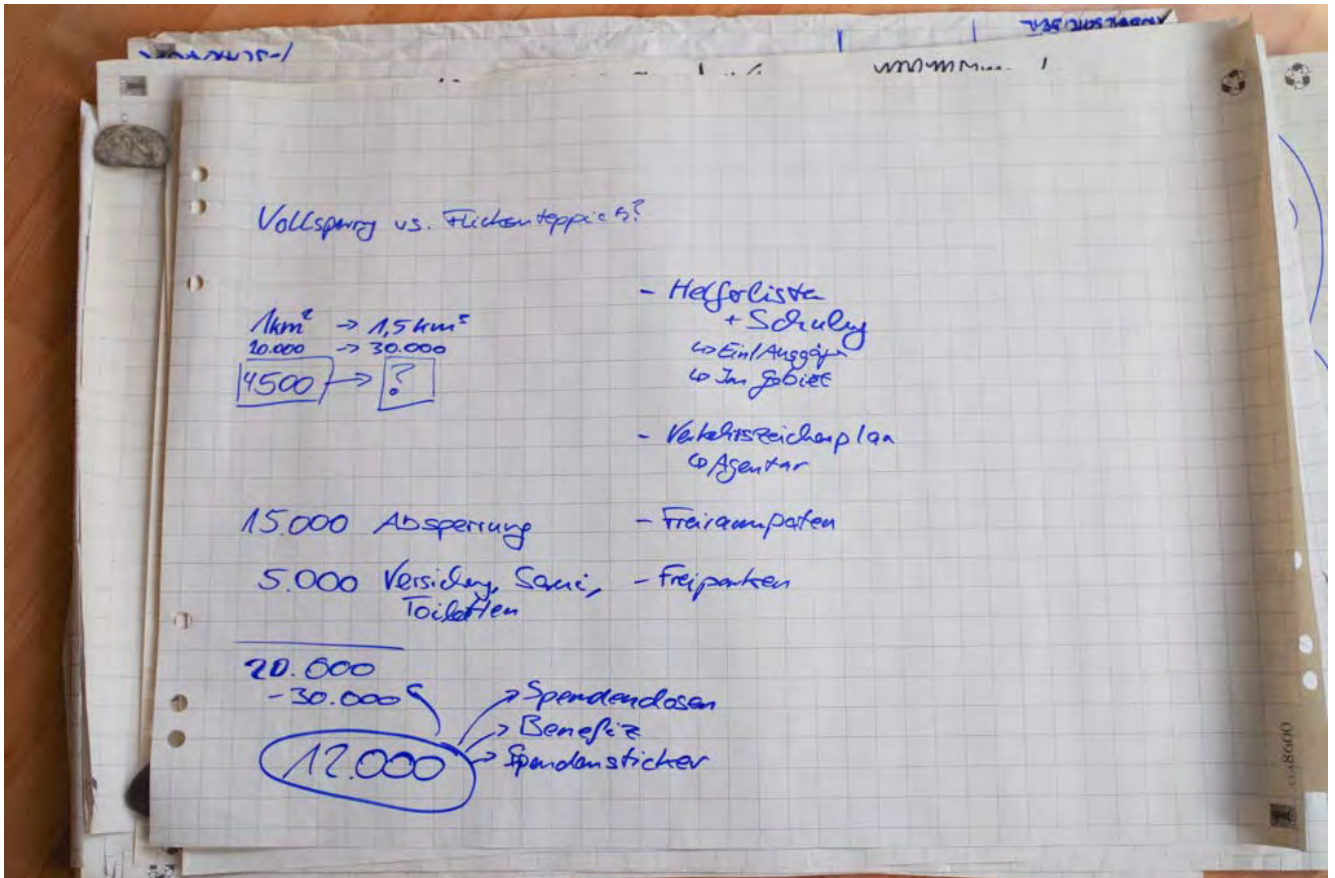 Vollsperrg vs. Flickenteppich?
1km² -> 1,5 km²
20.000 -> 30.000
4500 -> ?
15.000 Absperrung
5.000 Versicherg, Sani,
Toiletten
20.000
-30.000
12.000
-> Spendendosen
-> Benefiz
-> Spendensticker
- Helferlisten
+ Schulug
↳ Ein/Ausgäge
↳ Im Gebiet
- Verkehrszeichenplan
↳ Agentur
- Freiraumpaten
- Freiparken